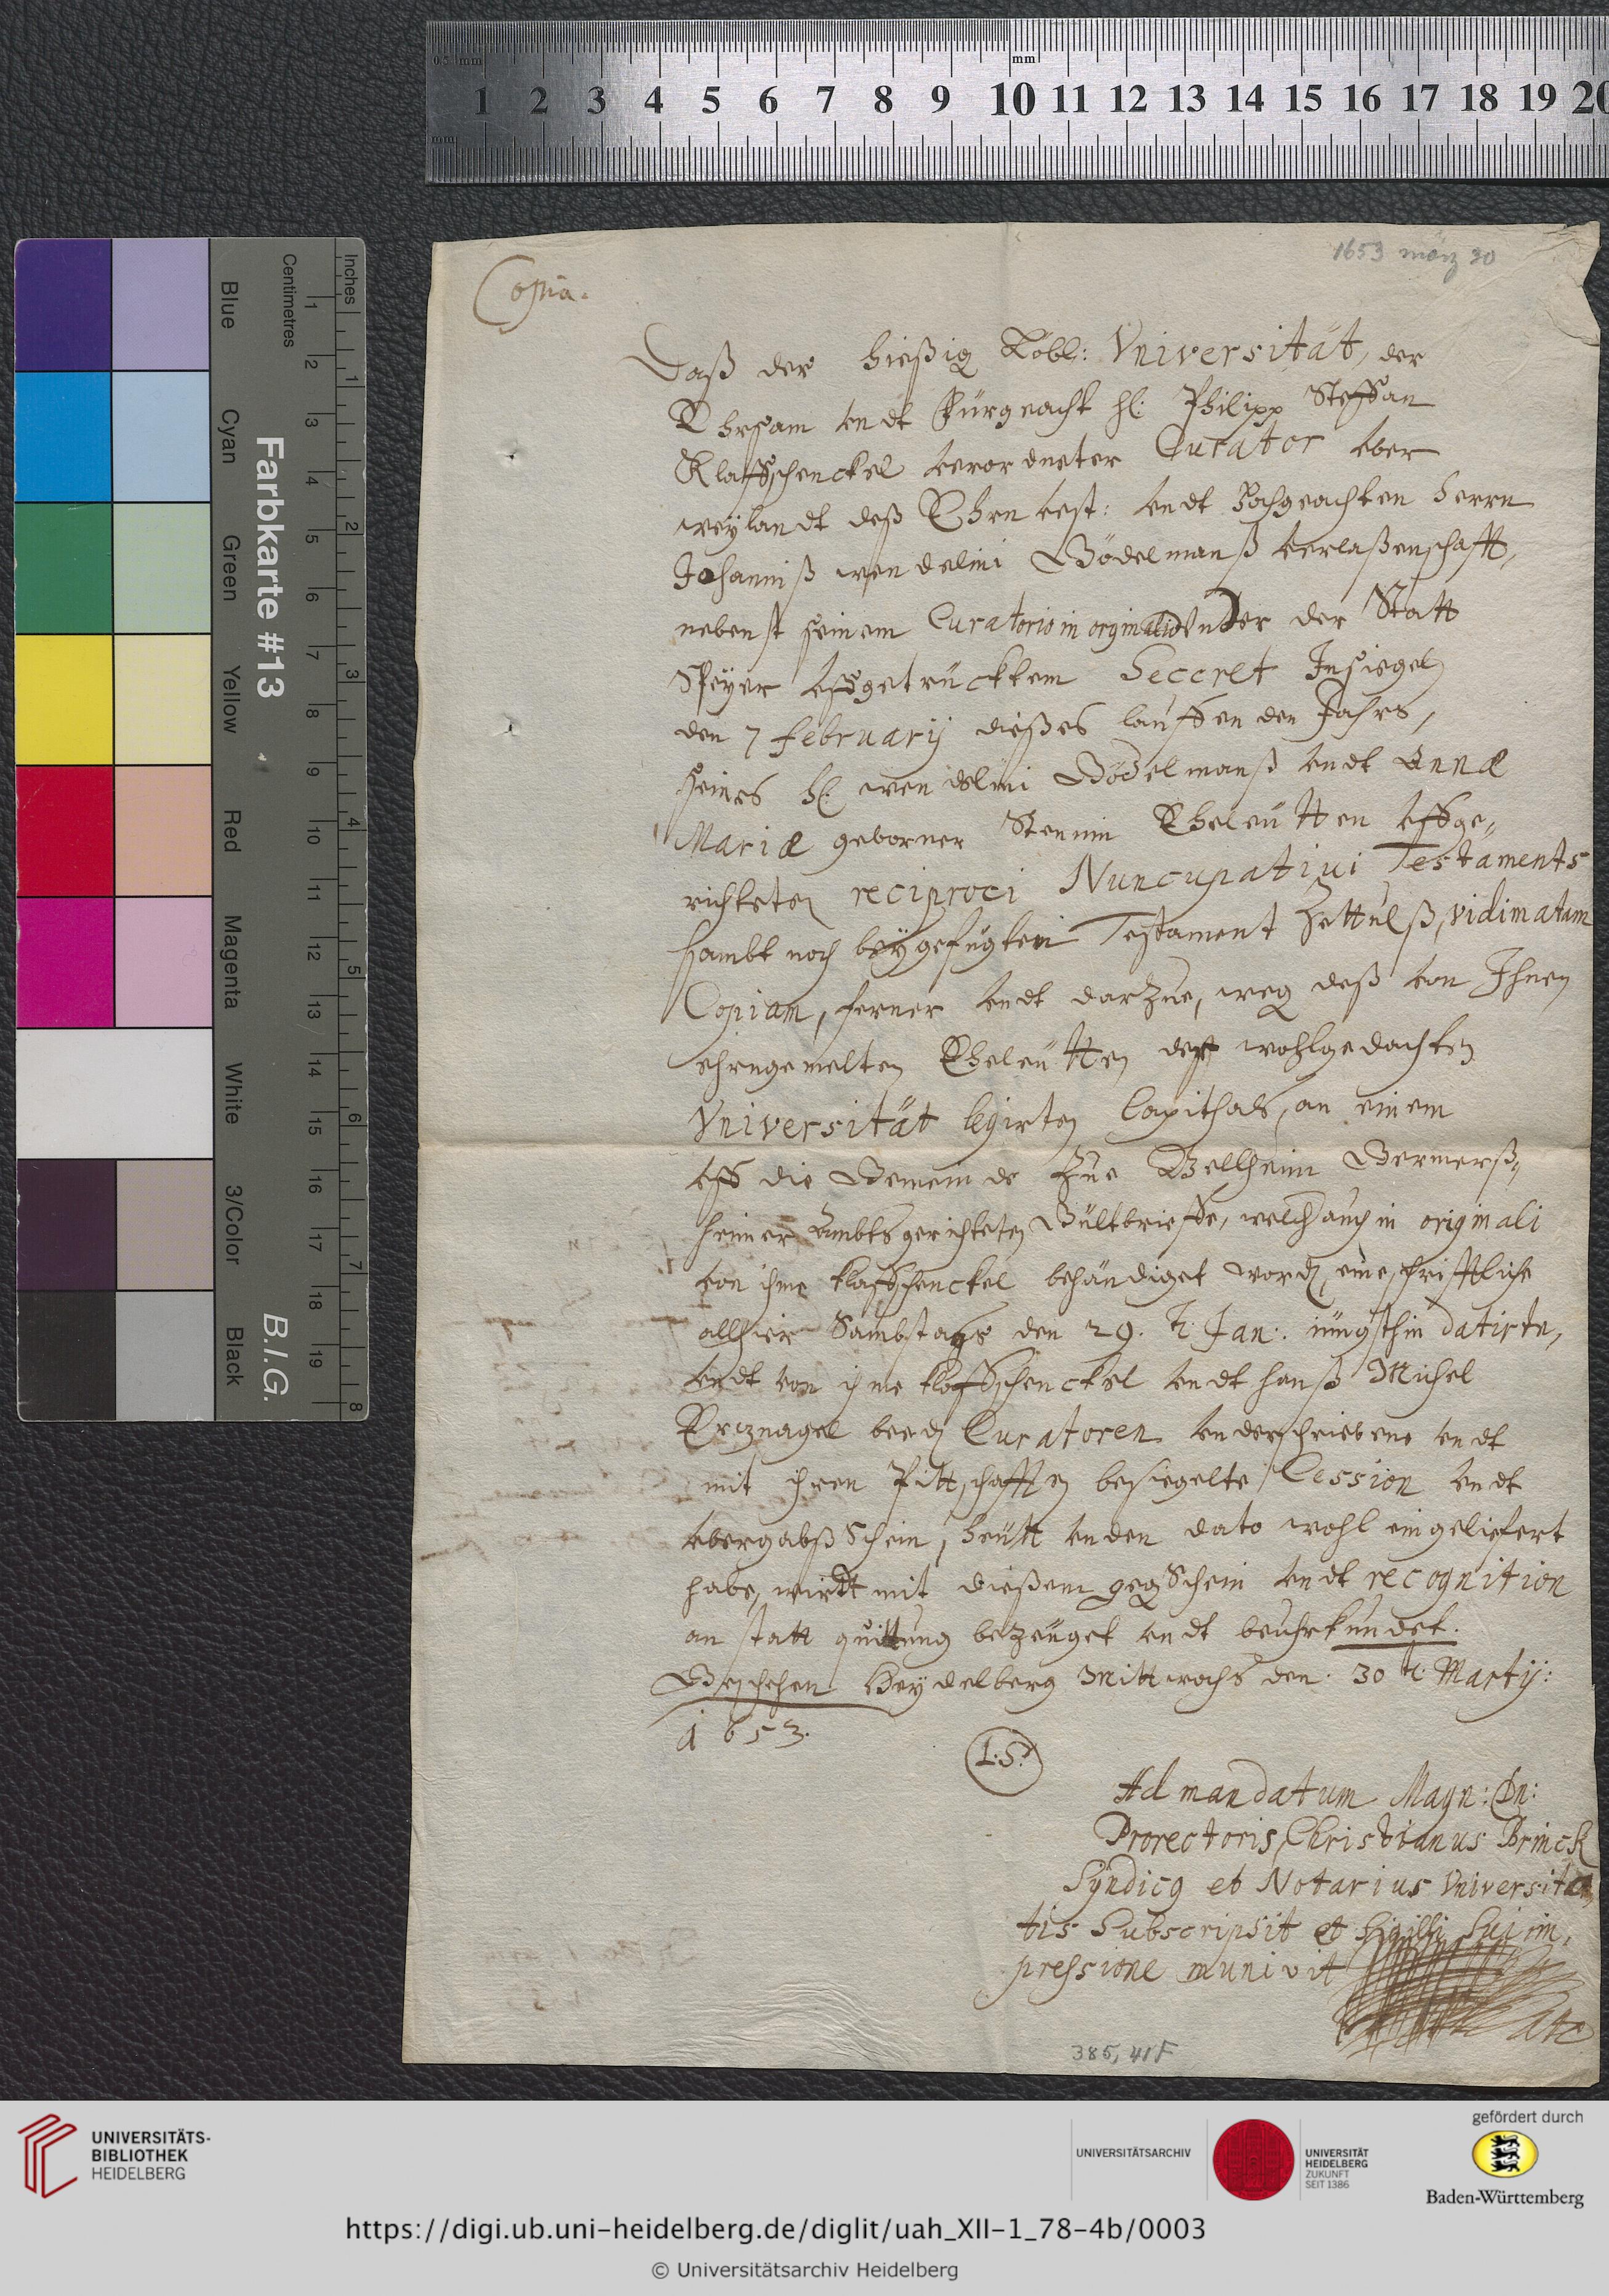 0.5 mm
mm
mm
1 2 3 4 5 6 7 8 9 10 11 12 13 14 15 16 17 18 19 20
Farbkarte #13
B.I.G.
Centimetres
Inches
Blue
Cyan
Green
Yellow
Red
Magenta
White
3/Color
Black
1653 märz 30
Copia.
Daß der hießig Löbl: Vniversität, der
Ehrsam vndt Fürgeacht hl: Philipp Steffan
Klaffschenckel verordneter Curator vber
weylandt deß Ehrnvest: vndt hochgeachten herrn
Johanniß wendelini Gödelmanß verlaßenschafft,
nebenst seinem Curatorio in originali vnder der Statt
Speyer vffgetrücktem Seccret Insiegel
den 7 february dießes lauffenden Jahrs,
seines hl: wendelini Gödelmanß vndt Annæ
Mariæ geborner Eheleütten vffge„
richteten reciproci Nuncupativi Testaments
sambt noch beygefügtem Testament Zettulß, vidimatam
Copiam, ferner vndt darzue, weg deß von Ihnen
ehrngemelten Eheleütten wohlgedachten
Vniversität legirten Capithals, an einem
vff die Gemeinde Zue Bellheim Germerß„
heimer Ambts gerichteten Gültbrieffe, welch auch in originali
von ihme klaffschenckel behändiget word, eine schrifftliche
allhier Sambstags den 29. t. Jan: jüngsthin datirte,
vndt von ihme klaffschenckel vndt hanß Michel
beed Curatoren vnderschriebene vndt
mit ihren Pittschafften besiegelte Cession vndt
vbergabß Schein, heütt vnden dato wohl eingeliefert
habe, wirdt mit dießem geg Schein vndt recognition
an statt quittung bezeüget vndt beuhrkundet.
Geschehen Heydelberg Mittwochs den 30 t. Martij:
1653.
L:S:
Ad mandatum Magn: Dn:
Prorectoris, Christianus Brinck
Syndicq et Notarius Vniversita
tis Subscripsit et Sigilli Sui im„
pressione munivit
385, 41f
UNIVERSITÄTS-
BIBLIOTHEK
HEIDELBERG
UNIVERSITÄTSARCHIV
UNIVERSITÄT
HEIDELBERG
ZUKUNFT
SEIT 1386
gefördert durch
Baden-Württemberg
https://digi.ub.uni-heidelberg.de/diglit/uah_XII-1_78-4b/0003
© Universitätsarchiv Heidelberg